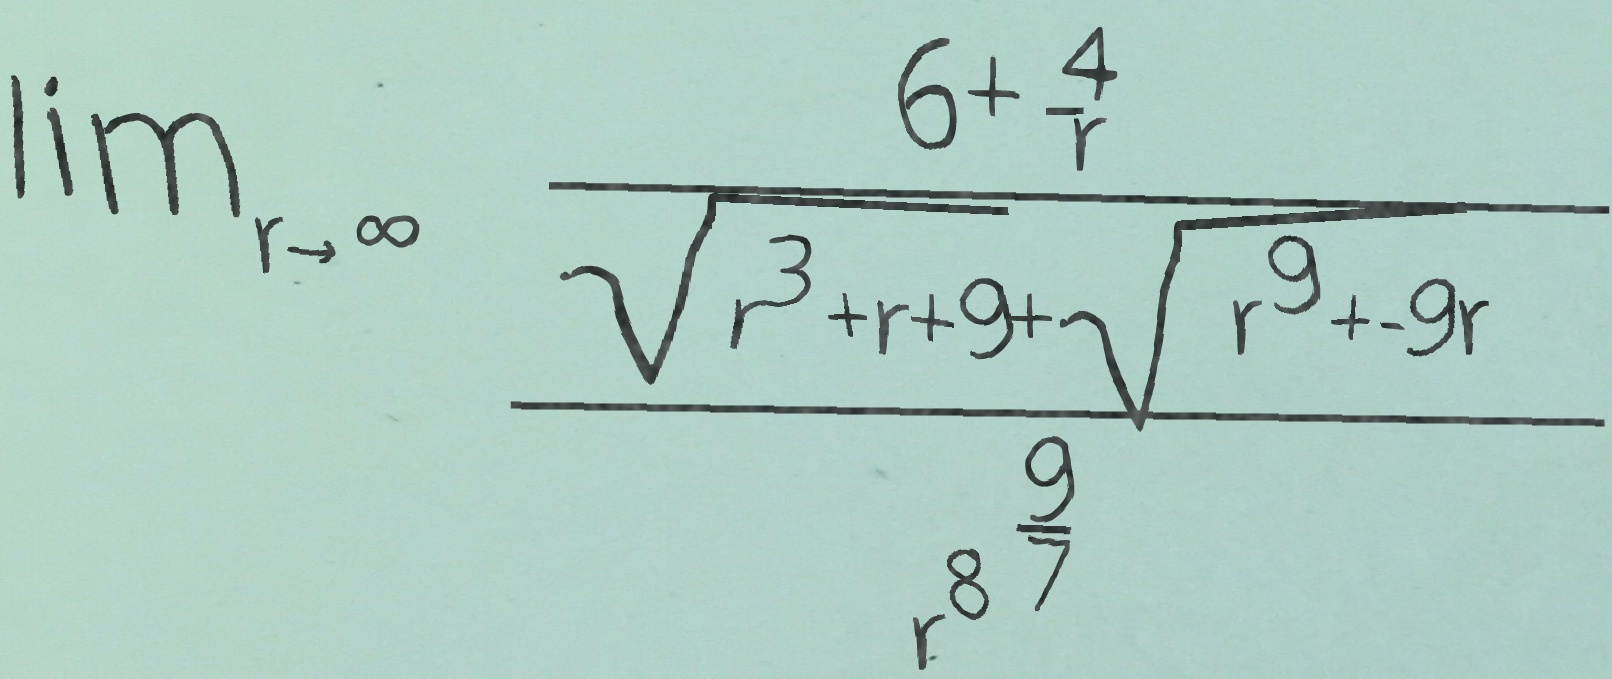 \lim_{r \to \infty} \frac{\frac{6 + \frac{4}{r}}{\sqrt{r^3 + r + 9} + \sqrt{r^9 + -9r}}}{r^{8^{\frac{9}{7}}}}